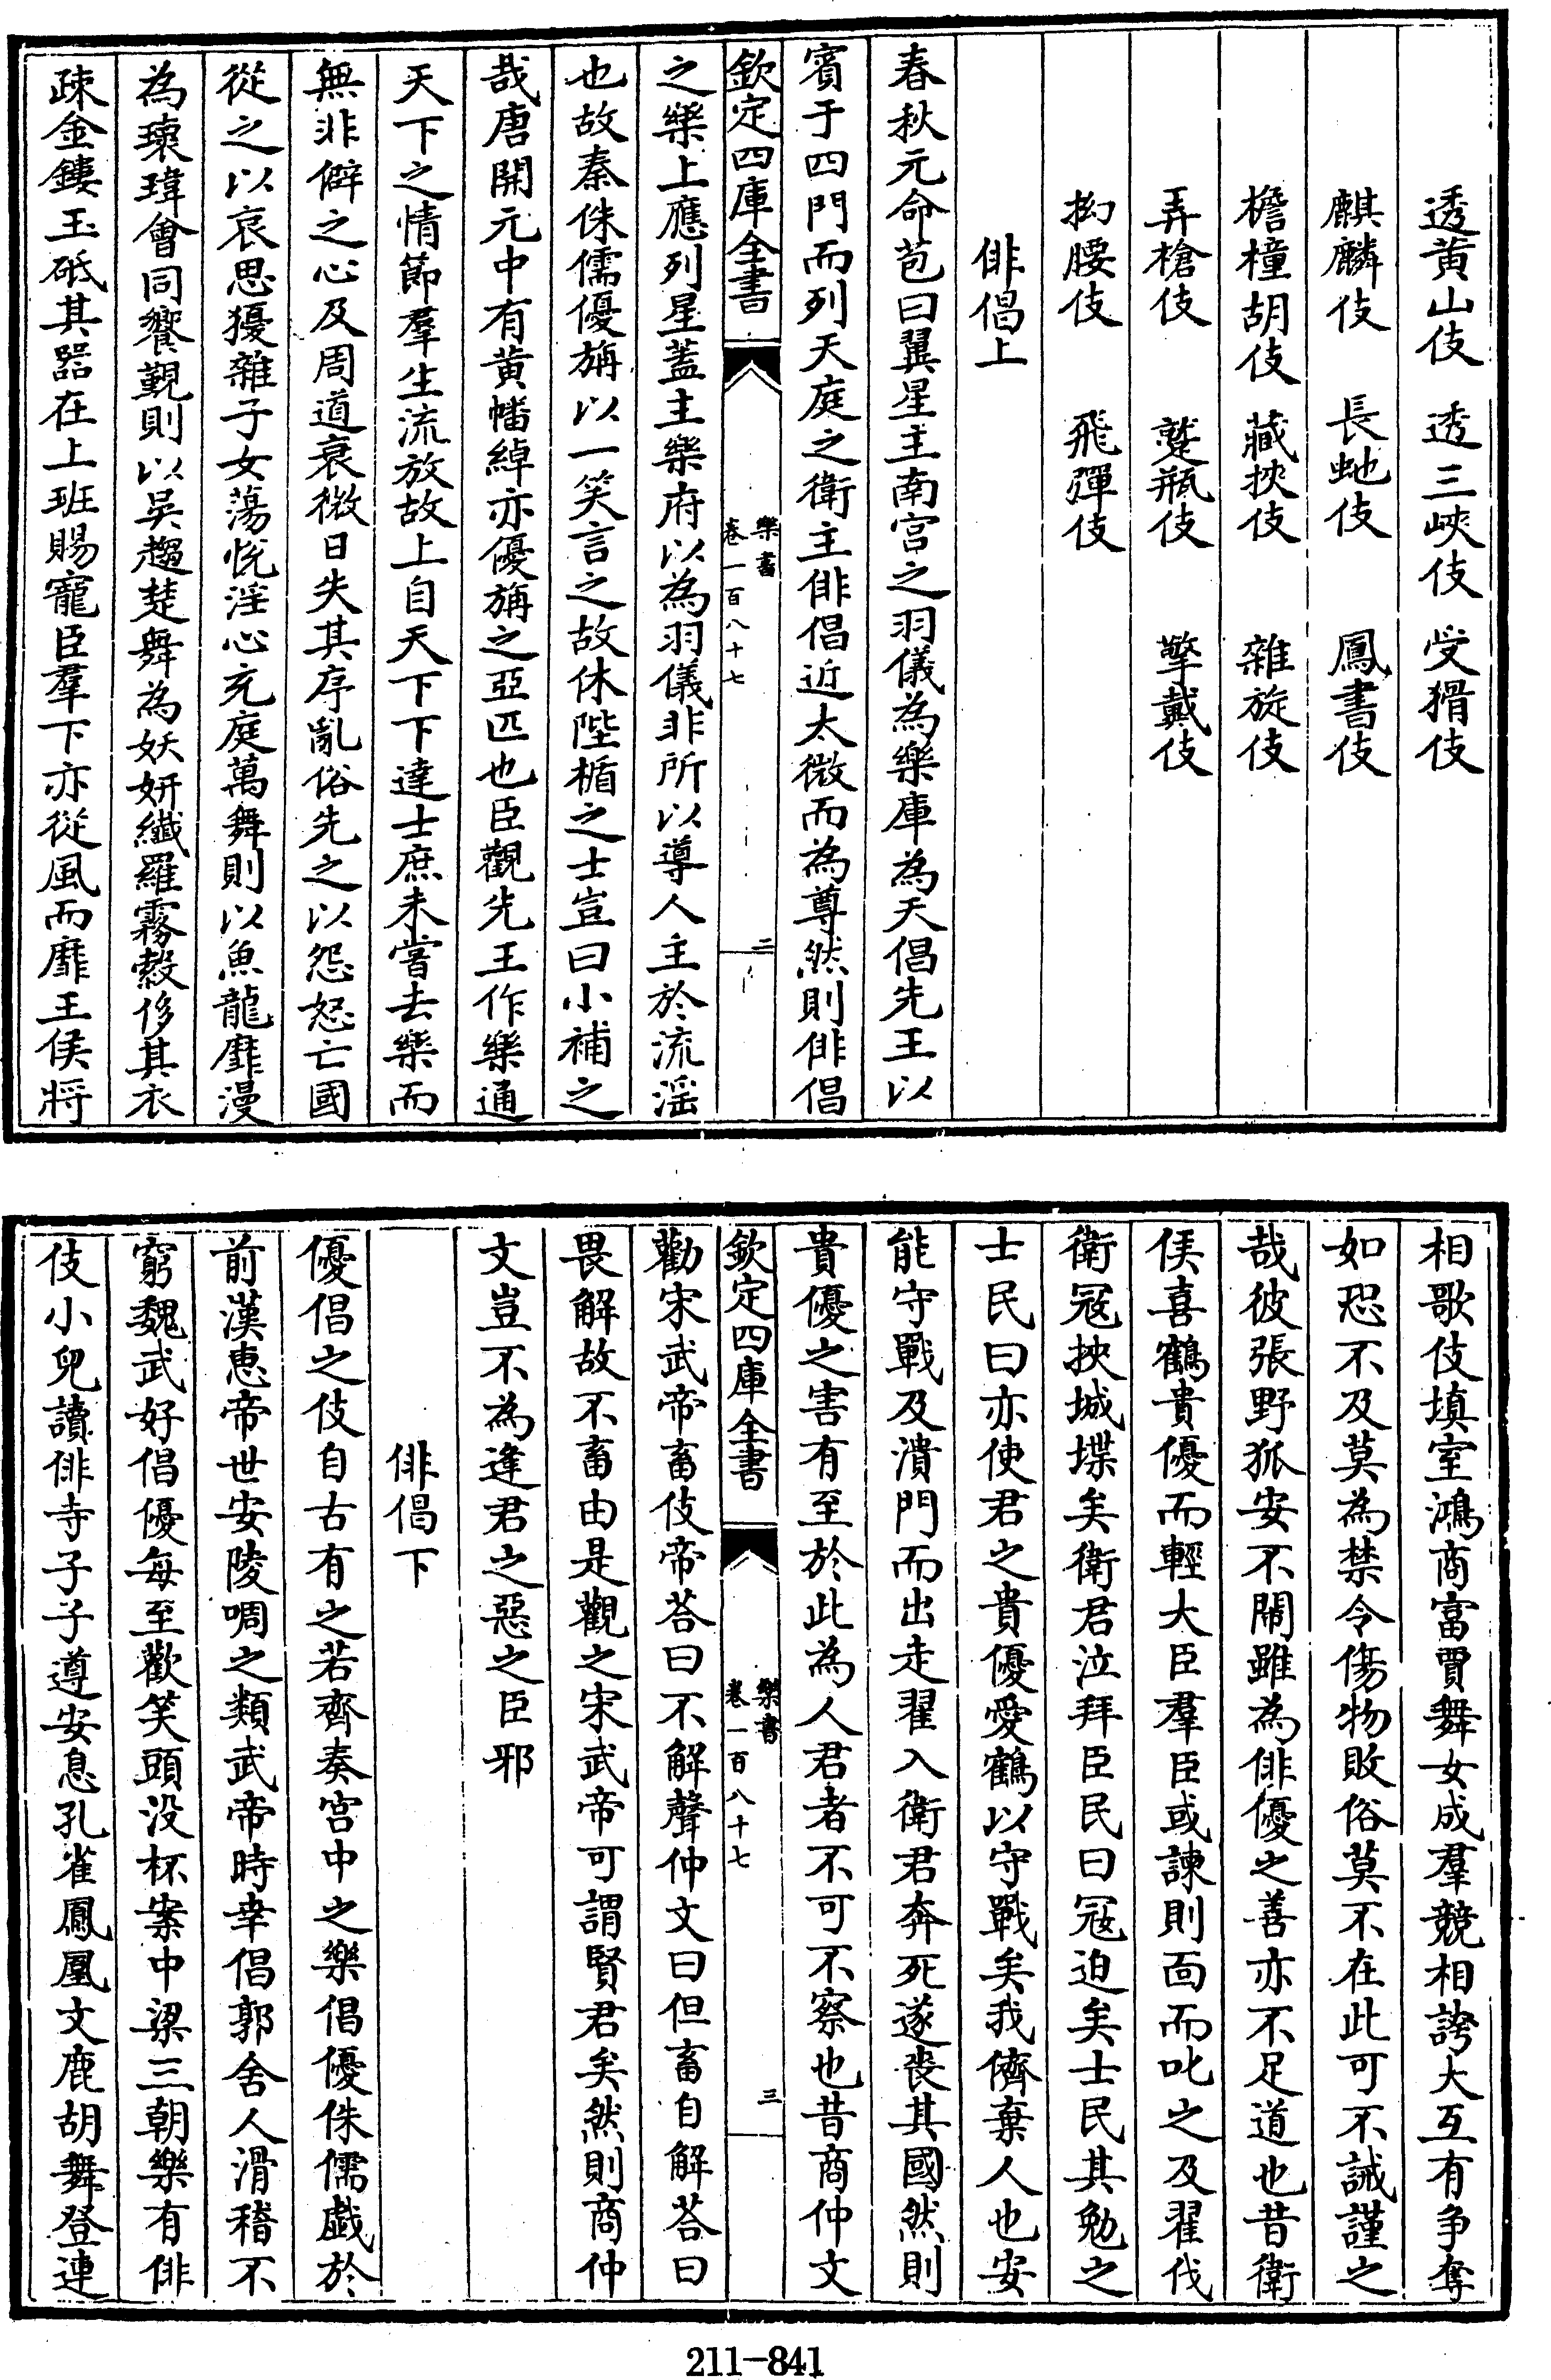 透黄山伎　透三峽伎　受猾伎
麒麟伎　長虵伎　鳳書伎
檐橦胡伎　藏挾伎　雜旋伎
弄槍伎　蹵瓶伎　擎戴伎
拗腰伎　飛彈伎
俳倡上
春秋元命苞曰翼星主南宫之羽儀為樂庫為天倡先王以
賓于四門而列天庭之衛主俳倡近太微而為尊然則俳倡
欽定四庫全書
樂書
卷一百八十七
二
之樂上應列星蓋主樂府以為羽儀非所以導人主於流淫
也故秦侏儒優旃以一笑言之故休陛楯之士豈曰小補之
哉唐開元中有黄幡綽亦優旃之亞匹也臣觀先王作樂通
天下之情節羣生流放故上自天下下達士庶未嘗去樂而
無非僻之心及周道衰微日失其序亂俗先之以怨怒亡國
從之以哀思擾雜子女蕩悦淫心充庭萬舞則以魚龍靡漫
為瓌瑋會同饗覲則以吳趨楚舞為妖妍纎羅霧縠侈其衣
疎金鏤玉砥其器在上班賜寵臣羣下亦從風而靡王侯將
相歌伎填室鴻商富賈舞女成羣競相誇大互有争奪
如恐不及莫為禁令傷物敗俗莫不在此可不誡謹之
哉彼張野狐安不鬧雖為俳優之善亦不足道也昔衛
侯喜鶴貴優而輕大臣羣臣或諫則靣而叱之及翟伐
衛冦挾城堞矣衛君泣拜臣民曰冦迫矣士民其勉之
士民曰亦使君之貴優愛鶴以守戰矣我儕棄人也安
能守戰及潰門而出走翟入衛君奔死遂喪其國然則
貴優之害有至於此為人君者不可不察也昔商仲文
欽定四庫全書
樂書
卷一百八十七
三
勸宋武帝畜伎帝荅曰不解聲仲文曰但畜自解荅曰
畏解故不畜由是觀之宋武帝可謂賢君矣然則商仲
文豈不為逢君之惡之臣邪
俳倡下
優倡之伎自古有之若齊奏宫中之樂倡優侏儒戲於
前漢惠帝世安陵啁之類武帝時幸倡郭舍人滑稽不
窮魏武好倡優每至歡笑頭没杯案中梁三朝樂有俳
伎小兒讀俳寺子子遵安息孔雀鳳凰文鹿胡舞登連
211-841